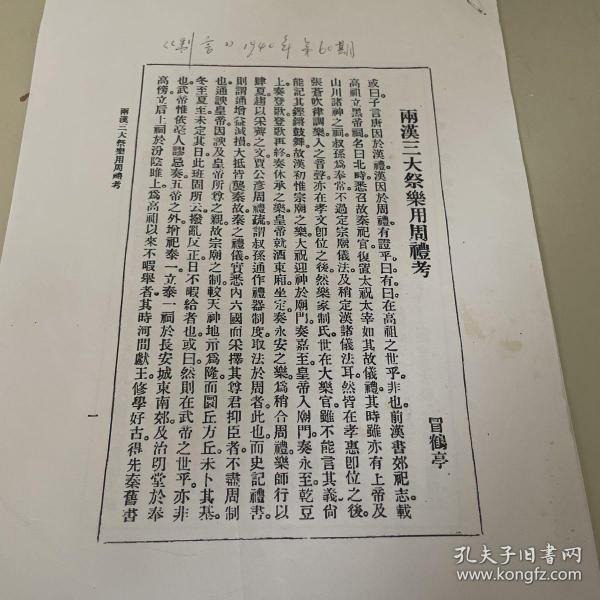 《制言》1940年第60期
兩漢三大祭樂用周禮考
冒鶴亭
或曰子言唐因於漢禮漢因於周禮有證乎曰有曰在高祖之世乎非也前漢書郊祀志載
高祖立黑帝祠名曰北畤悉召故秦祀官復置太祝太宰如其故儀禮其時雖亦有上帝及
山川諸神之祠叔孫爲奉常不過定宗廟儀法及稍定漢諸儀法耳然皆在孝惠卽位之後
張蒼吹律調樂入之音聲亦在孝文卽位之後然樂家制氏世在大樂官雖不能言其義尙
能記其鏗鏘鼓舞故漢初惟宗廟之樂大祝迎神於廟門奏嘉至皇帝入廟門奏永至乾豆
上奏登歌登歌再終奏休承之樂皇帝就酒東廂坐定奏永安之樂爲稍合周禮樂師行以
肆夏趨以采薺之文賈公彥周禮疏謂叔孫通作禮器制度取法於周者此也而史記禮書
則謂通增益減損大抵皆襲秦故秦之禮儀實悉內六國而采擇其尊君抑臣者不盡周制
也通諛皇帝因諛及皇帝所尊之親故宗廟之制較天神地示爲隆而圜丘方丘未卜其基
冬至夏至未定其日此班固所云撥亂反正日不暇給者也或曰然則在武帝之世乎亦非
也武帝惟依亳人謬忌奏五帝之外增祀泰一立泰一祠於長安城東南郊及治明堂於奉
高傍立后土祠於汾陰雎上爲高祖以來不暇舉者其時河間獻王修學好古得先秦舊書
兩漢三大祭樂用周禮考
一
孔夫子旧书网
www.kongfz.com